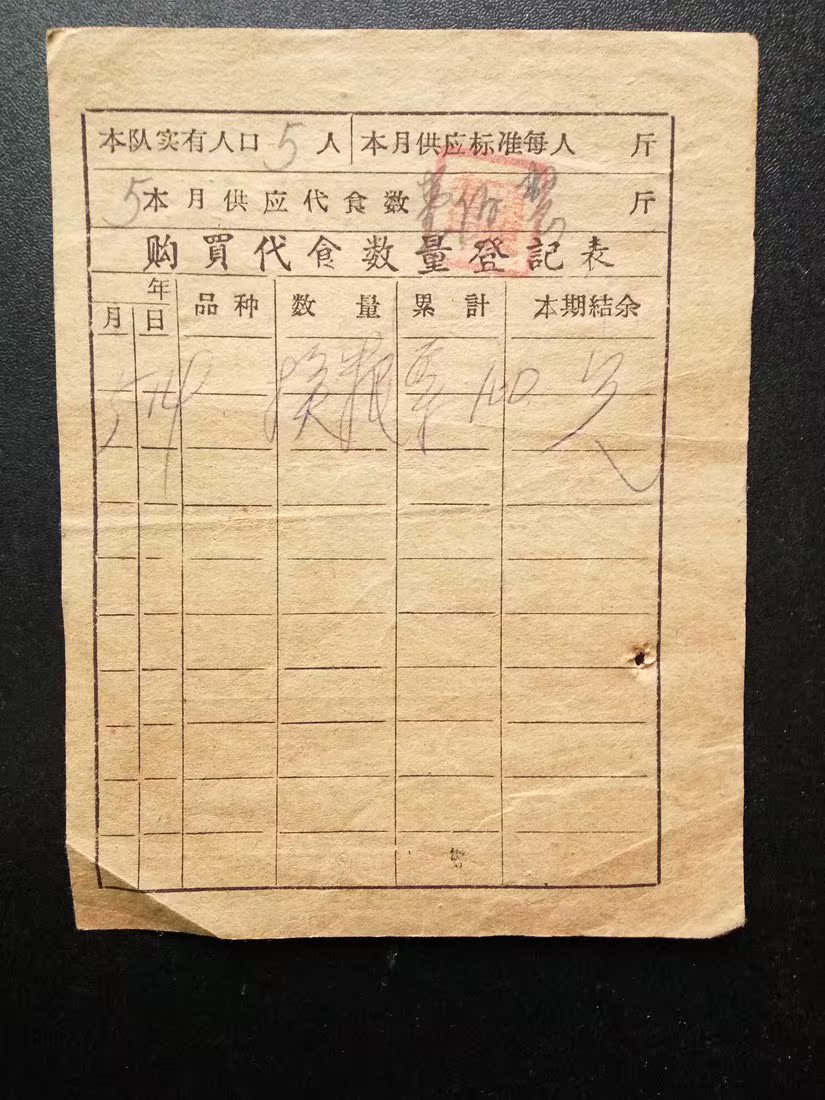 本队实有人口 5 人 本月供应标准每人 斤
5 本月供应代食数 壹佰 斤
购買代食数量登記表
年
月 日 品种 数量 累計 本期結余
5 14 换粮 100 欠